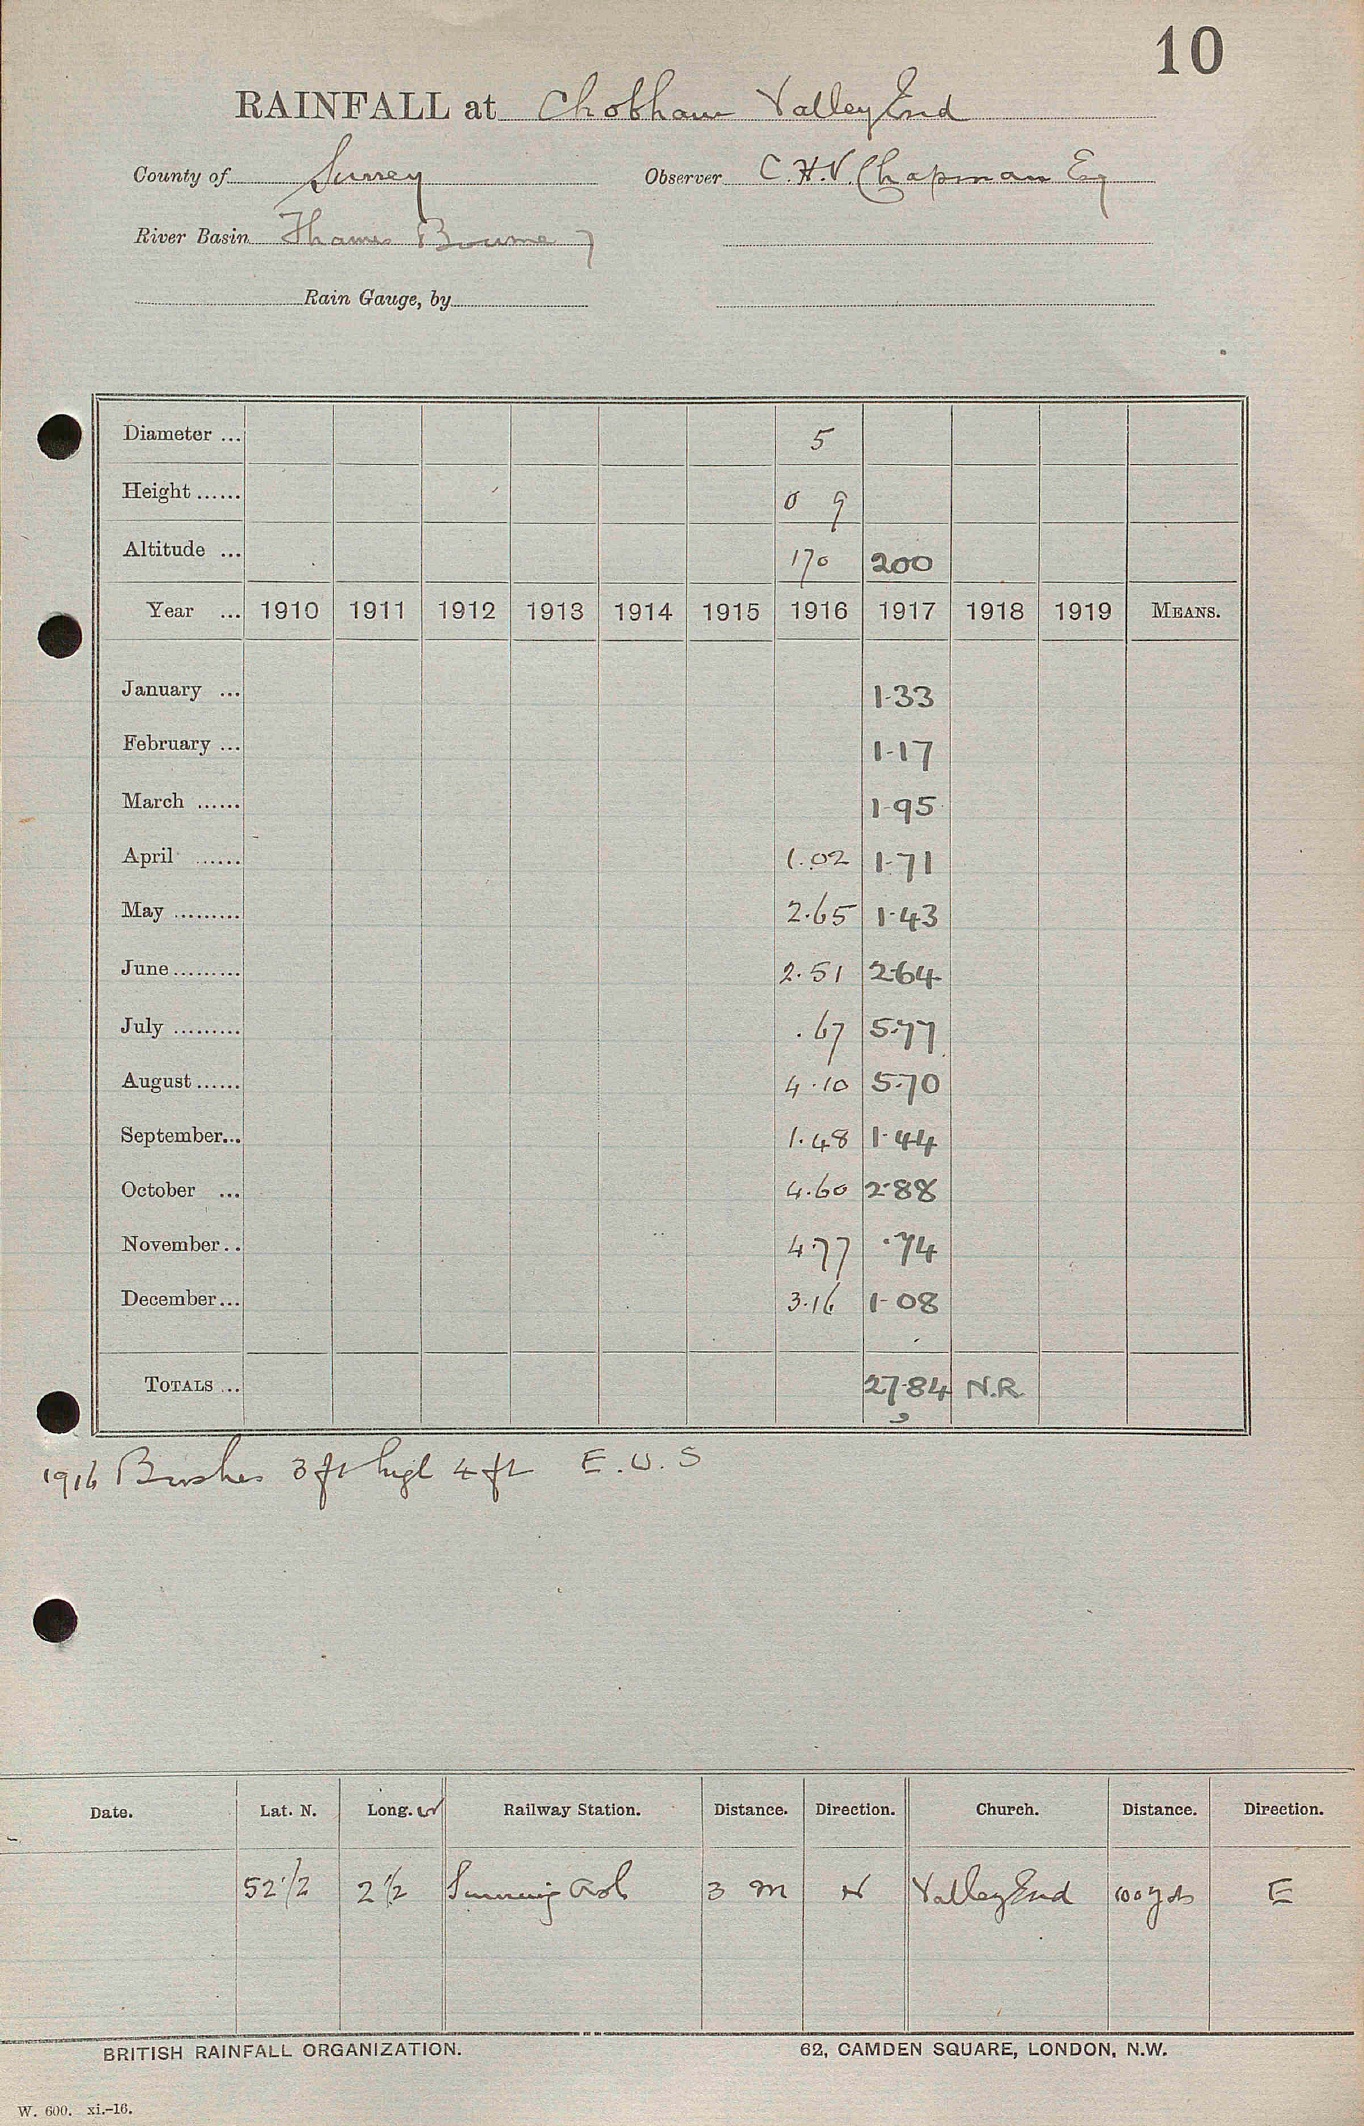 10
RAINFALL at Chobham Valley End
County of Surrey Observer C.H.V. Chapman Esq
River Basin Thames Bourne
Rain Gauge, by
Diameter ... 5
Height ...... 0 9
Altitude ... 170 200
Year ... 1910 1911 1912 1913 1914 1915 1916 1917 1918 1919 MEANS.
January ... 1.33
February ... 1.17
March ...... 1.95
April ...... 1.02 1.71
May ......... 2.65 1.43
June ......... 2.51 2.64
July ......... .67 5.77
August ...... 4.10 5.70
September... 1.48 1.44
October ... 4.60 2.88
November.. 4.77 .74
December... 3.16 1.08
TOTALS ... 27.84 N.R.
1916 Bushes 3 ft high 4 ft E. U. S
Date. Lat. N. Long. W Railway Station. Distance. Direction. Church. Distance. Direction.
52 1/2 2 1/2 3 m N Valley End 100 yds E
BRITISH RAINFALL ORGANIZATION. 62, CAMDEN SQUARE, LONDON, N.W.
W. 600. xi.-16.